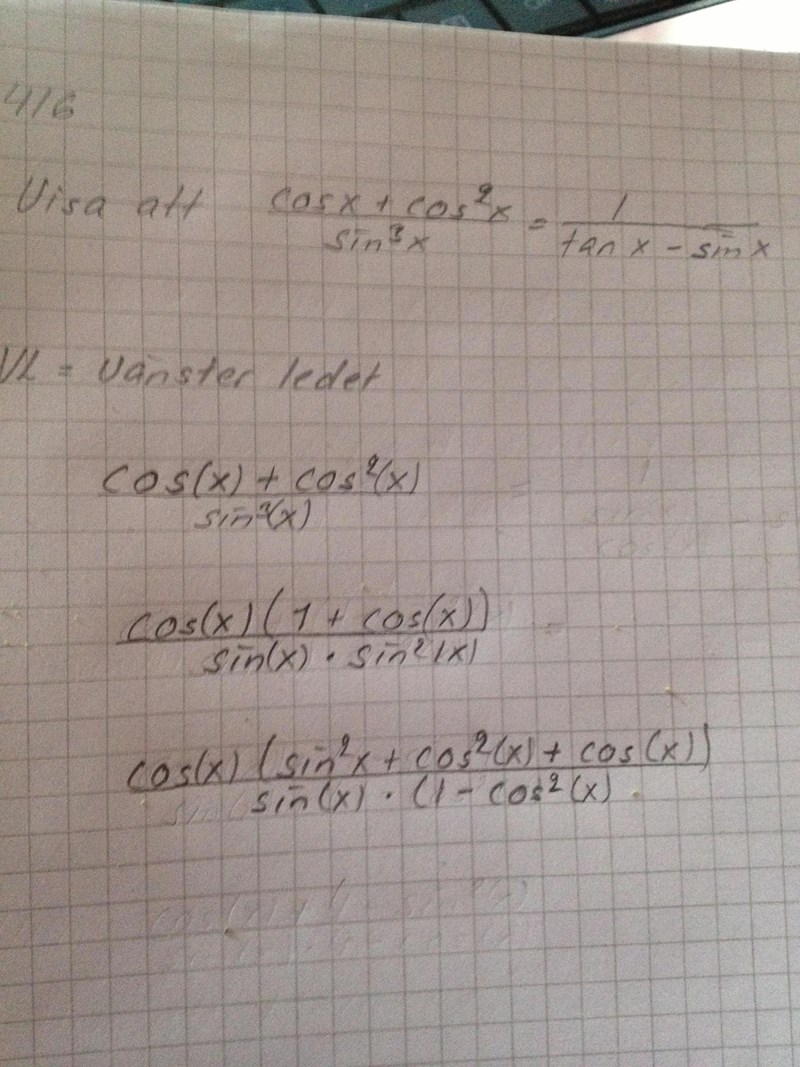 416
Visa att cosx + cos²x / sin³x = 1 / tan x - sin x
VL = Vänster ledet
cos(x) + cos²(x) / sin³(x)
cos(x)(1 + cos(x)) / sin(x) · sin²(x)
cos(x)(sin²x + cos²(x) + cos(x)) / sin(x) · (1 - cos²(x)